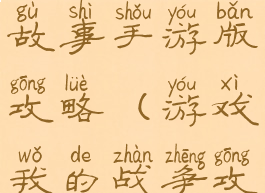 gù shì shǒu yóu bǎn
故事手游版
gōng lüè yóu xì
攻略（游戏
wǒ de zhàn zhēng gōng
我的战争攻